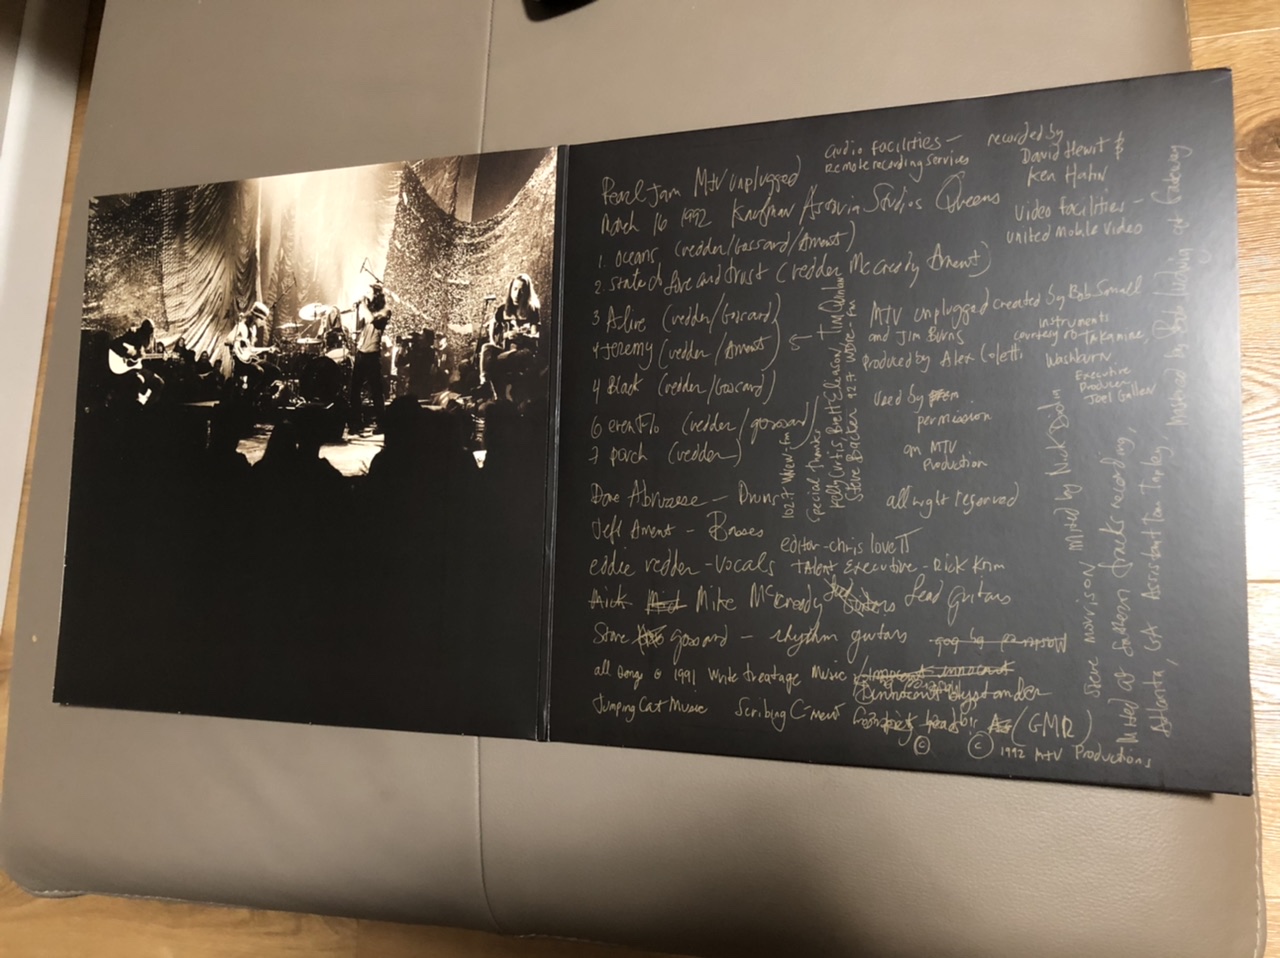 Pearl Jam MTV unplugged
March 16 1992 Kaufman Astoria Studios Queens
1. oceans (vedder/Gossard/Ament)
2. state of love and trust (vedder McCready Ament)
3 Alive (vedder/Gossard)
4 Jeremy (vedder/Ament)
4 Black (vedder/Gossard)
6 evenflo (vedder/gossard)
7 porch (vedder)
Dave Abruzzese - Drums
Jeff Ament - Basses
eddie vedder - vocals
Mick Mike McCready Lead guitars
Stone gossard - rhythm guitars
all songs © 1991 Write treatage Music / innocent innocent
Innocent Bystander
Jumping Cat Music Scribing C-ment (GMR)
© © 1992 MTV Productions
audio facilities -
Remote recording services
recorded by
David Hewitt &
Ken Hahn
Video facilities -
united Mobile Video
MTV unplugged created by Bob Small
and Jim Burns
produced by Alex Coletti
instruments
courtesy of Takamine,
Washburn
Executive
Producer
Joel Gallen
Used by
permission
an MTV
Production
all right reserved
editor - chris lovett
talent Executive - Rick Krim
102.7 WNEW-fm
special thanks
Kelly Curtis, Brett Eliason, Tim Quinlan
Steve Backer 92.7 WDRE-FM
Mixed by Nick DiDia
Steve morrison
Mixed at southern tracks recording,
Atlanta, GA Assistant Tom Tapley,
Mastered by Bob Ludwig at Gateway